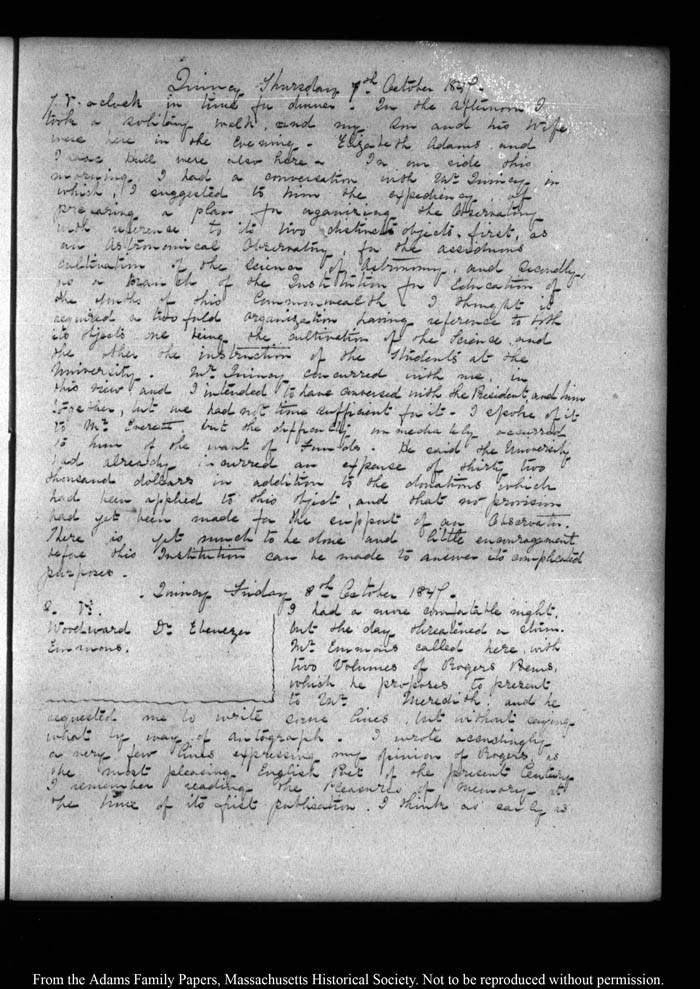 Quincy Thursday 7th October 1847.
o'clock in time for dinner. In the afternoon I
took a solitary walk, and my Son and his wife
were here in the Evening. Elizabeth Adams and
Isaac Hull were also here. In our ride this
morning I had a conversation with Mr Quincy in
which I suggested to him the expediency of
preparing a plan for organizing the Observatory
with reference to its two distinct objects, first, as
an Astronomical Observatory for the assiduous
cultivation of the Science of Astronomy, and secondly,
as a branch of the Institution for Education of
the youths of this Commonwealth. I thought it
required a two fold organization having reference to both
its objects one being the cultivation of the Science, and
the other the instruction of the Students at the
University. Mr Quincy concurred with me, in
this view and I intended to have conversed with the President, and him
together, but we had not time sufficient for it. I spoke of it
to Mr Everett, but the difficulty immediately occurred
to him of the want of Funds. He said the University
had already incurred an expense of thirty two
thousand dollars in addition to the donations which
had been applied to this object, and that no provision
had yet been made for the support of an Observator.
There is yet much to be done and little encouragement
before this Institution can be made to answer its complicated
purposes.
Quincy Friday 8th October 1847.
Woodward Dr Ebenezer
Emmons.
I had a more comfortable night,
but the day threatened a storm.
Mr Emmons called here with
two Volumes of Rogers
which he proposes to present
to Mr Meredith, and he
requested me to write some lines, but without saying
what by way of autograph. I wrote accordingly
a very few lines expressing my opinion of Rogers, as
the most pleasing English Poet of the present Century
I remember reading the Pleasures of Memory at
the time of its first publication. I think as early as
From the Adams Family Papers, Massachusetts Historical Society. Not to be reproduced without permission.